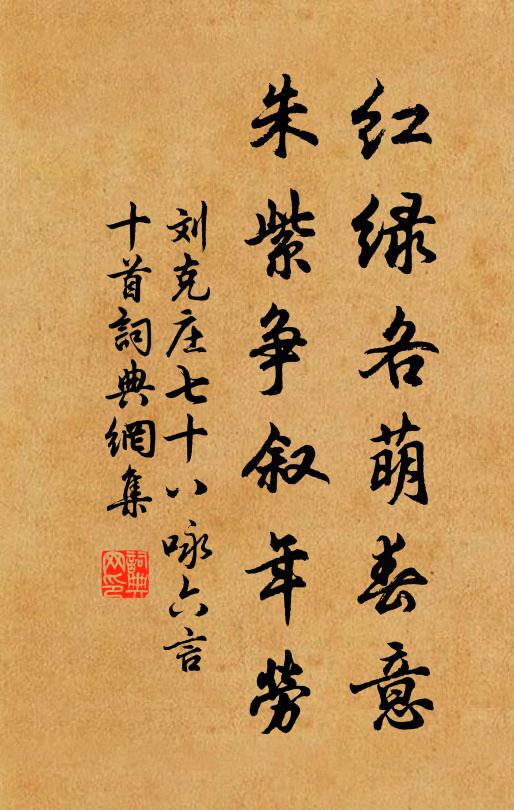 红绿各萌春意
朱紫争叙年劳
刘克庄七十八咏六言
十首詞典網集
詞典
网印